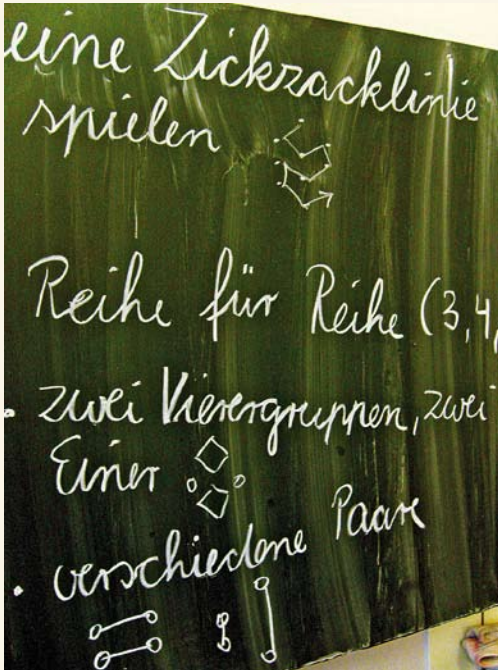 eine Zickzacklinie
spielen
Reihe für Reihe (3,4,
. zwei Vierergruppen, zwei
Einer
. verschiedene Paare